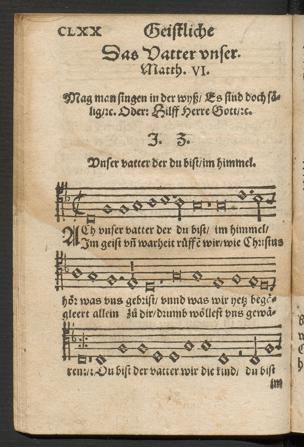 CLXX Geistliche
Das Vatter vnser.
Matth. VI.
Mag man singen in der wyß/ Es sind doch sä-
lig/ꝛc. Oder: Hilff Herre Gott/ꝛc.
J. Z.
Vnser vatter der du bist/im himmel.
ACh vnser vatter der du bist/ im himmel/
Jm geist vñ warheit rüffẽ wir/wie Christus
hör was vns gebrist/ vnnd was wir yetz begä-
gleert allein zů dir/drumb wöllest vns gewä-
ren:/: Du bist der vatter wir die kind/ du bist
im